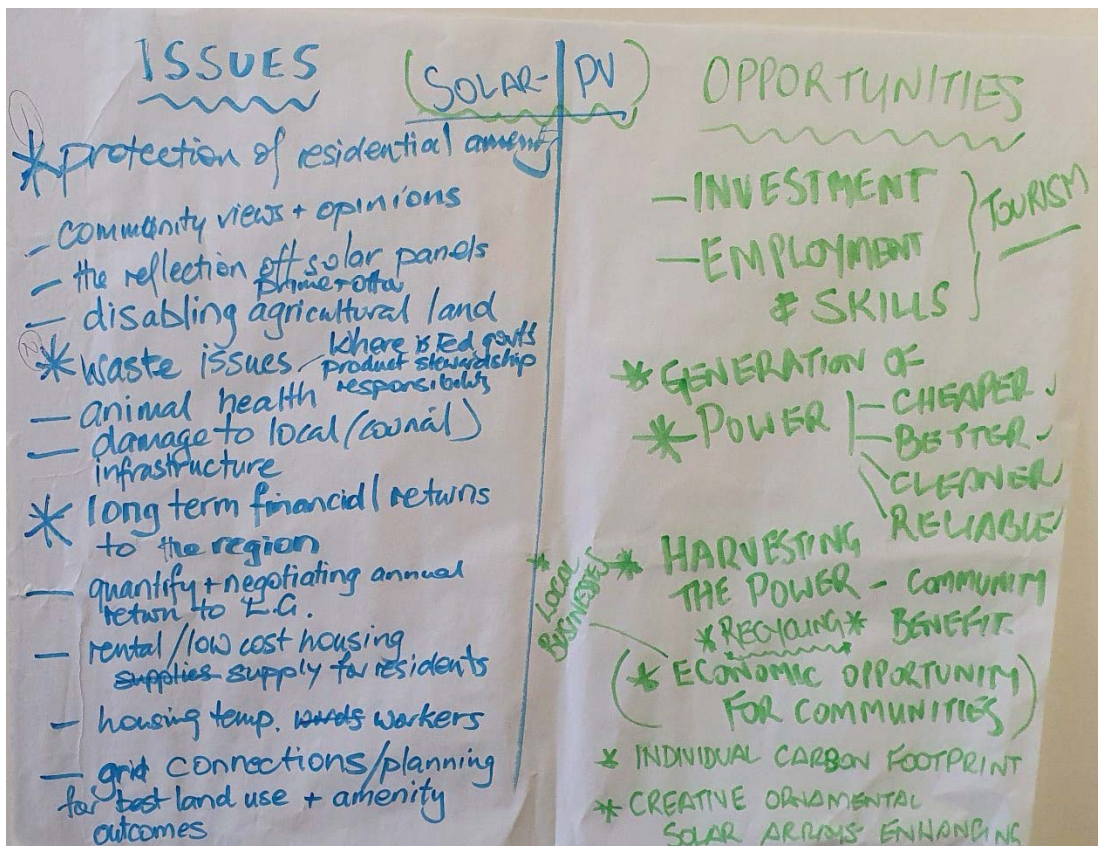 ISSUES
(SOLAR-PV)
* protection of residential amenity
- community views + opinions
- the reflection off solar panels
prime + other
- disabling agricultural land
* waste issues - Where is Fed govts
product stewardship
responsibility
- animal health
- damage to local (council)
infrastructure
* long term financial returns
to the region
- quantify + negotiating annual
return to L.G.
- rental/low cost housing
supplies supply for residents
- housing temp. workers
- grid connections/planning
for best land use + amenity
outcomes
OPPORTUNITIES
- INVESTMENT
- EMPLOYMENT
& SKILLS
TOURISM
* GENERATION OF
* POWER
- CHEAPER
- BETTER
CLEANER
RELIABLE
* LOCAL
BUSINESSES
* HARVESTING
THE POWER - COMMUNITY
BENEFIT
* RECYCLING *
(* ECONOMIC OPPORTUNITY
FOR COMMUNITIES)
* INDIVIDUAL CARBON FOOTPRINT
* CREATIVE ORNAMENTAL
SOLAR ARRAYS ENHANCING